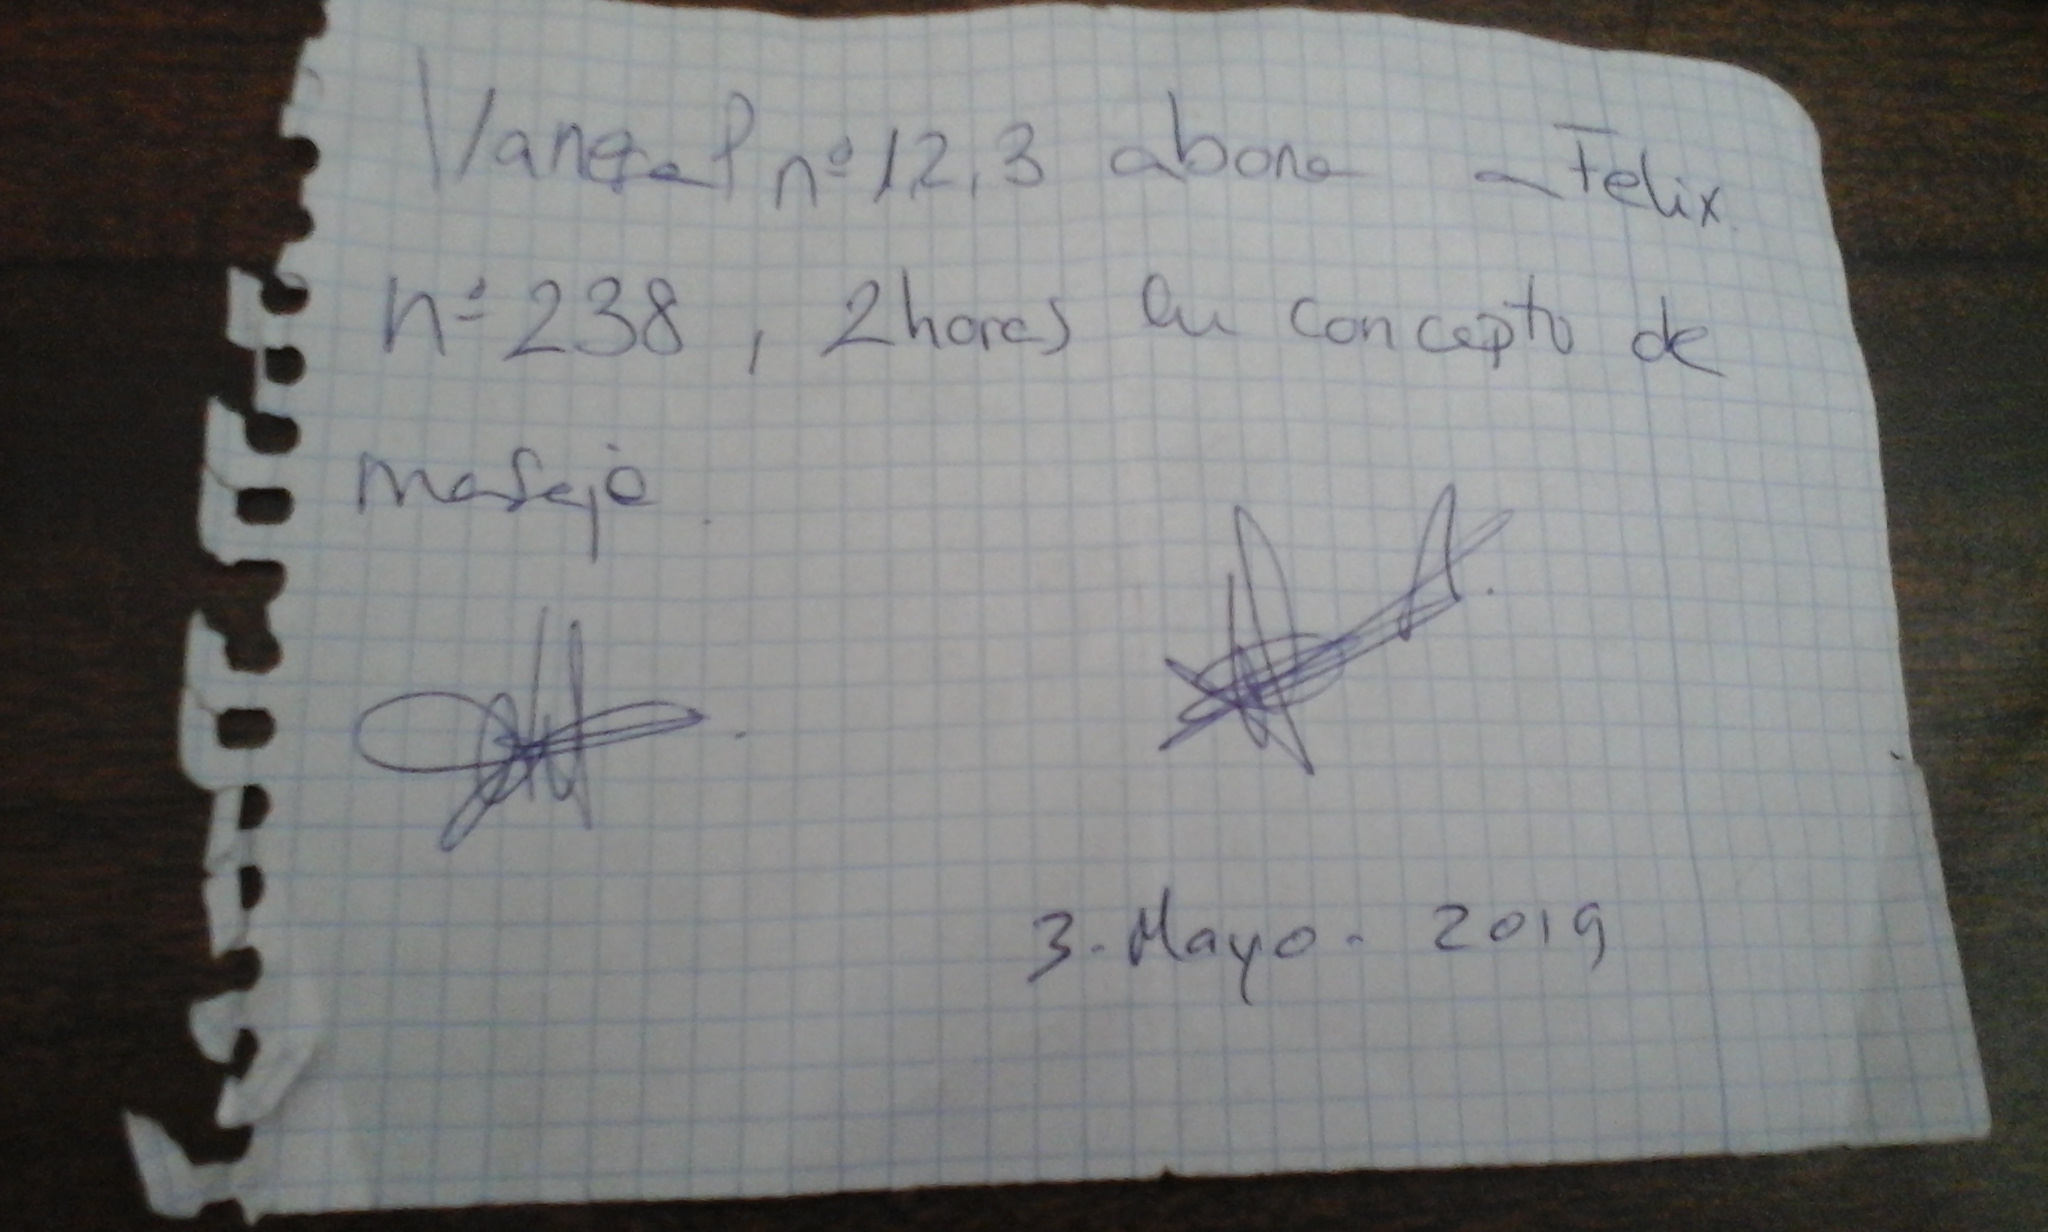 Vanesa P nº 12,3 abona a Felix
nº 238, 2 horas en concepto de
masaje.
3-Mayo-2019